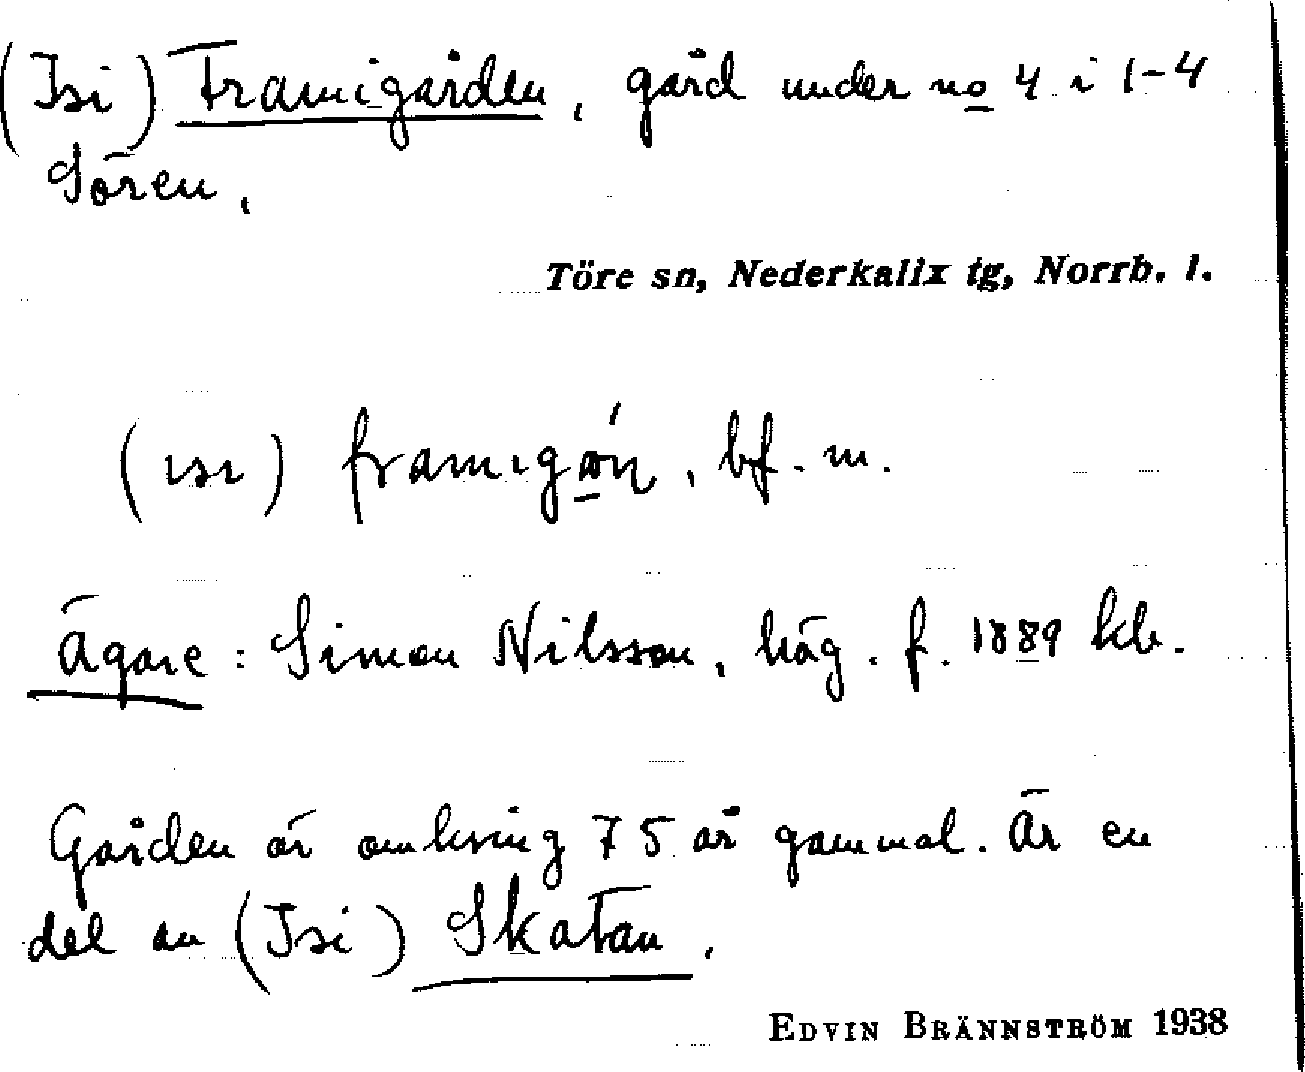 (Isi) Framigården, gård under no 4 i 1-4
Sören.
Töre sn, Nederkalix tg, Norrb. l.
(ısı) framıgǻɳ, bf. m.
Ägare: Simon Nilsson, häg. f. 1889 kb.
Gården är omkring 75 år gammal. Är en
del av (Isi) Skatan.
EDVIN BRÄNNSTRÖM 1938